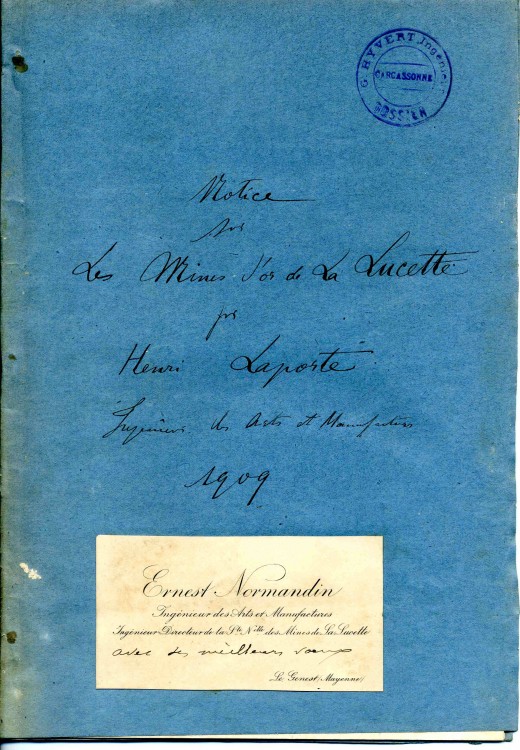 G. HYVERT Ingénieur
CARCASSONNE
DOSSIER
Notice
sur
Les Mines d'or de La Lucette
par
Henri Laporte
Ingénieur des Arts et Manufactures
1909
Ernest Normandin
Ingénieur des Arts et Manufactures
Ingénieur Directeur de la Sté Nlle des Mines de La Lucette
avec ses meilleurs vœux
Le Genest (Mayenne)